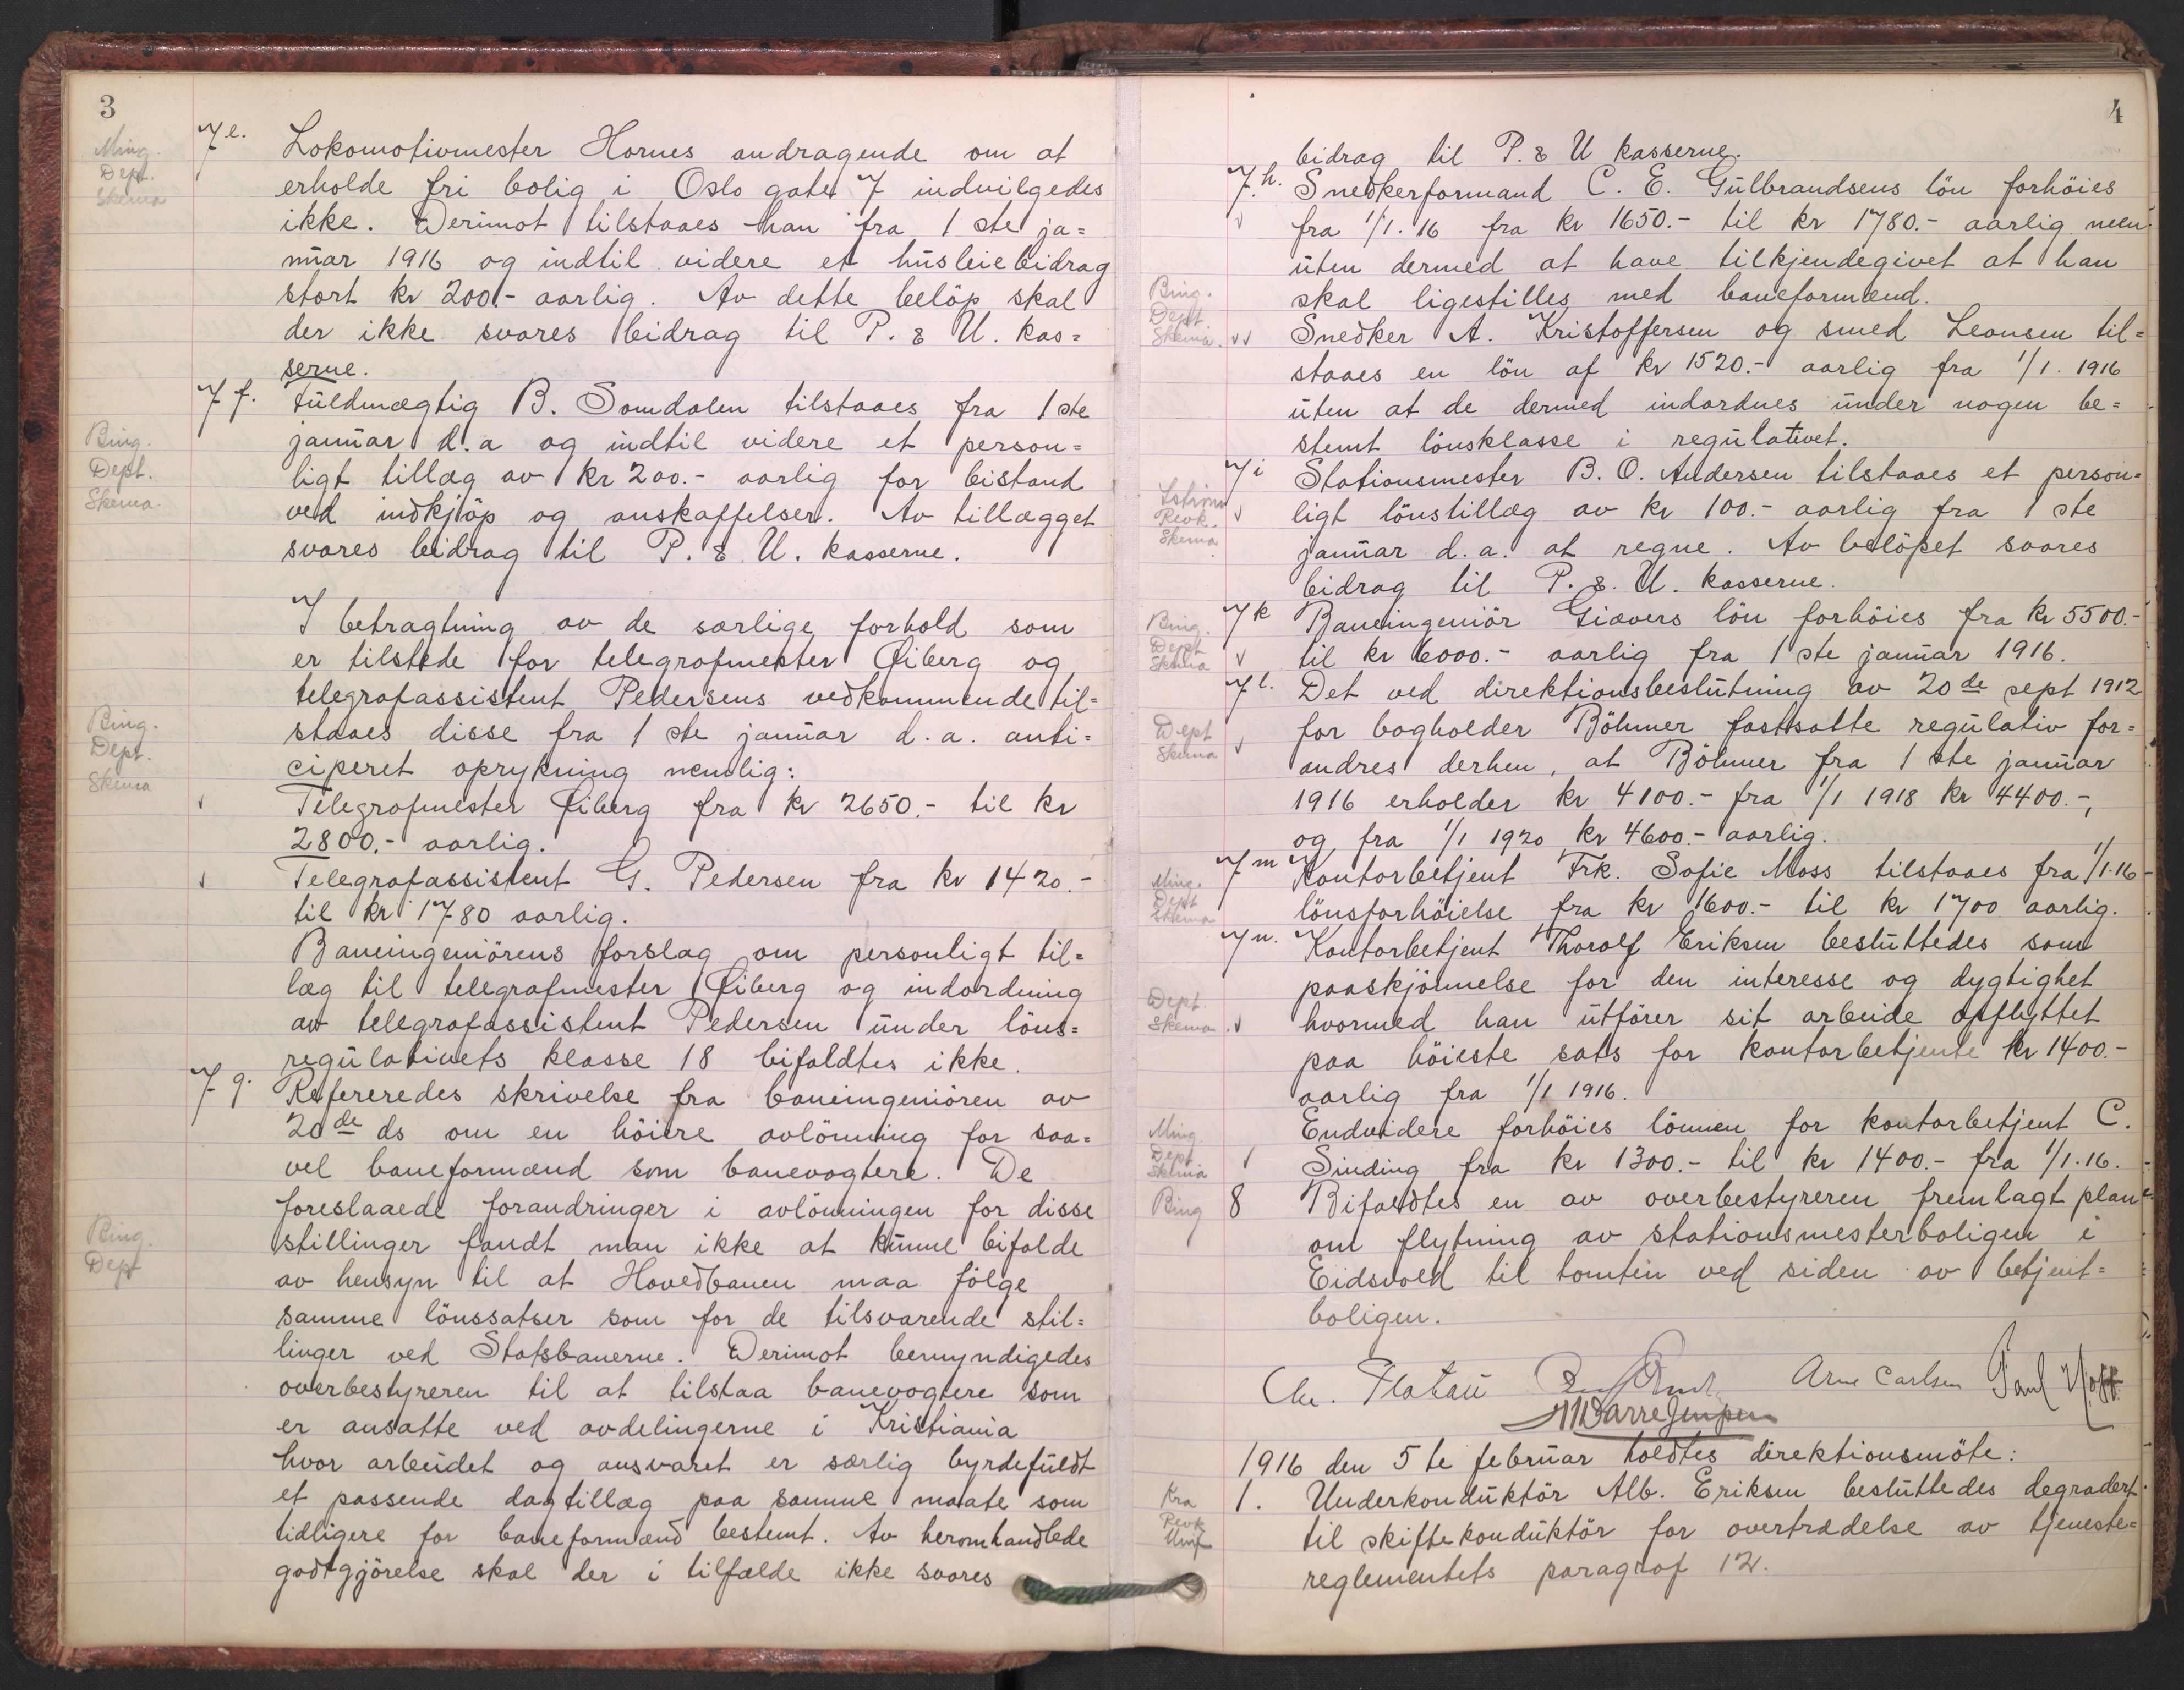 3
7 e. Lokomotivmester Hornes andragende om at
Ming.
Dept.
Skema
erholde fri bolig i Oslo gate 7 indvilgedes
ikke. Derimot tilstaaes han fra 1 ste ja=
nuar 1916 og indtil videre et husleiebidrag
stort kr 200.- aarlig. Av dette beløp skal
der ikke svares bidrag til P. & U. kas=
serne.
7 f. Fuldmægtig B. Somdalen tilstaaes fra 1 ste
januar d.a og indtil videre et person=
Bing.
Dept.
Skema.
ligt tillæg av kr 200.- aarlig for bistand
ved indkjöp og anskaffelser. Av tillægget
svares bidrag til P. & U. kasserne.
I betragtning av de særlige forhold som
er tilstede for telegrafmester Øiberg og
telegrafassistent Pedersens vedkommende til=
Bing.
Dept.
Skema
staaes disse fra 1 ste januar d.a. anti=
ciperet oprykning nemlig:
Telegrafmester Øiberg fra kr 2650.- til kr
2800.- aarlig.
Telegrafassistent G. Pedersen fra kr 1420.-
til kr 1780 aarlig.
Baneingeniörens forslag om personligt til=
læg til telegrafmester Øiberg og indordning
av telegrafassistent Pedersen under löns=
regulativets klasse 18 bifaldtes ikke.
7 g. Refereredes skrivelse fra baneingeniören av
20de ds om en höiere avlönning for saa=
vel baneformænd som banevogtere. De
foreslaaede forandringer i avlönningen for disse
Bing.
Dept
stillinger fandt man ikke at kunne bifalde
av hensyn til at Hovedbanen maa fölge
samme lönssatser som for de tilsvarende stil=
linger ved Statsbanerne. Derimot bemyndigedes
overbestyreren til at tilstaa banevogtere som
er ansatte ved avdelingerne i Kristiania
hvor arbeidet og ansvaret er særlig byrdefuldt
et passende dagtillæg paa samme maate som
tidligere for baneformænd bestemt. Av heromhandlede
godtgjörelse skal der i tilfælde ikke svares
4
bidrag til P. & U kasserne.
7. h. Snedkerformand C. E. Gulbrandsens lön forhöies
fra 1/1. 16 fra kr 1650.- til kr 1780.- aarlig men
uten dermed at have tilkjendegivet at han
Bing.
Dept
Skema.
skal ligestilles med baneformænd.
Snedker A. Kristoffersen og smed Leonsen til=
staaes en lön af kr 1520.- aarlig fra 1/1. 1916
uten at de dermed indordnes under nogen be=
stemt lönsklasse i regulativet.
7 i Stationsmester B. O. Andersen tilstaaes et person=
Revk.
Skema
ligt lönstillæg av kr 100.- aarlig fra 1 ste
januar d.a. at regne. Av belöpet svares
bidrag til P. & U. kasserne.
7 k Baneingeniör Giævers lön forhöies fra kr 5500.-
Bing.
Dept
Skema
til kr 6000.- aarlig fra 1 ste januar 1916.
7 l. Det ved direktionsbeslutning av 20de sept 1912
Dept
Skema
for bogholder Böhmer fastsatte regulativ for=
andres derhen, at Böhmer fra 1 ste januar
1916 erholder kr 4100.- fra 1/1 1918 kr 4400.-,
og fra 1/1 1920 kr 4600.- aarlig.
7 m Kontorbetjent Frk. Sofie Moss tilstaaes fra 1/1.16
Ming.
Dept
Skema
lönsforhöielse fra kr 1600.- til kr 1700 aarlig.
7 n. Kontorbetjent Thoralf Eriksen besluttedes som
paaskjönnelse for den interesse og dygtighet
Dept.
Skema
hvormed han utförer sit arbeide opflyttet
paa höieste sats for kontorbetjente kr 1400.-
aarlig fra 1/1 1916.
Endvidere forhöies lönnen for kontorbetjent C.
Ming
Dept
Skema
Sinding fra kr 1300.- til kr 1400.- fra 1/1.16.
Bing
8 Bifaldtes en av overbestyreren fremlagt plan
om flytning av stationsmesterboligen i
Eidsvold til tomten ved siden av betjent=
boligen.
Chr. Platou Arne Carlsen Paul Hoff
1916 den 5 te februar holdtes direktionsmöte:
Kra
Revk
1. Underkonduktör Alb. Eriksen besluttedes degradert
til skiftekonduktör for overtrædelse av tjeneste=
reglementets paragraf 12.